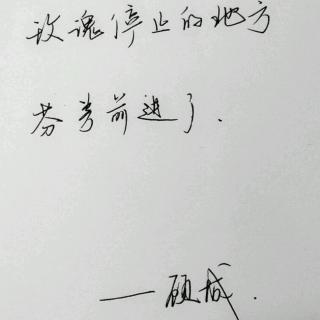 玫瑰停止的地方
芬芳前进了.
——顾城.